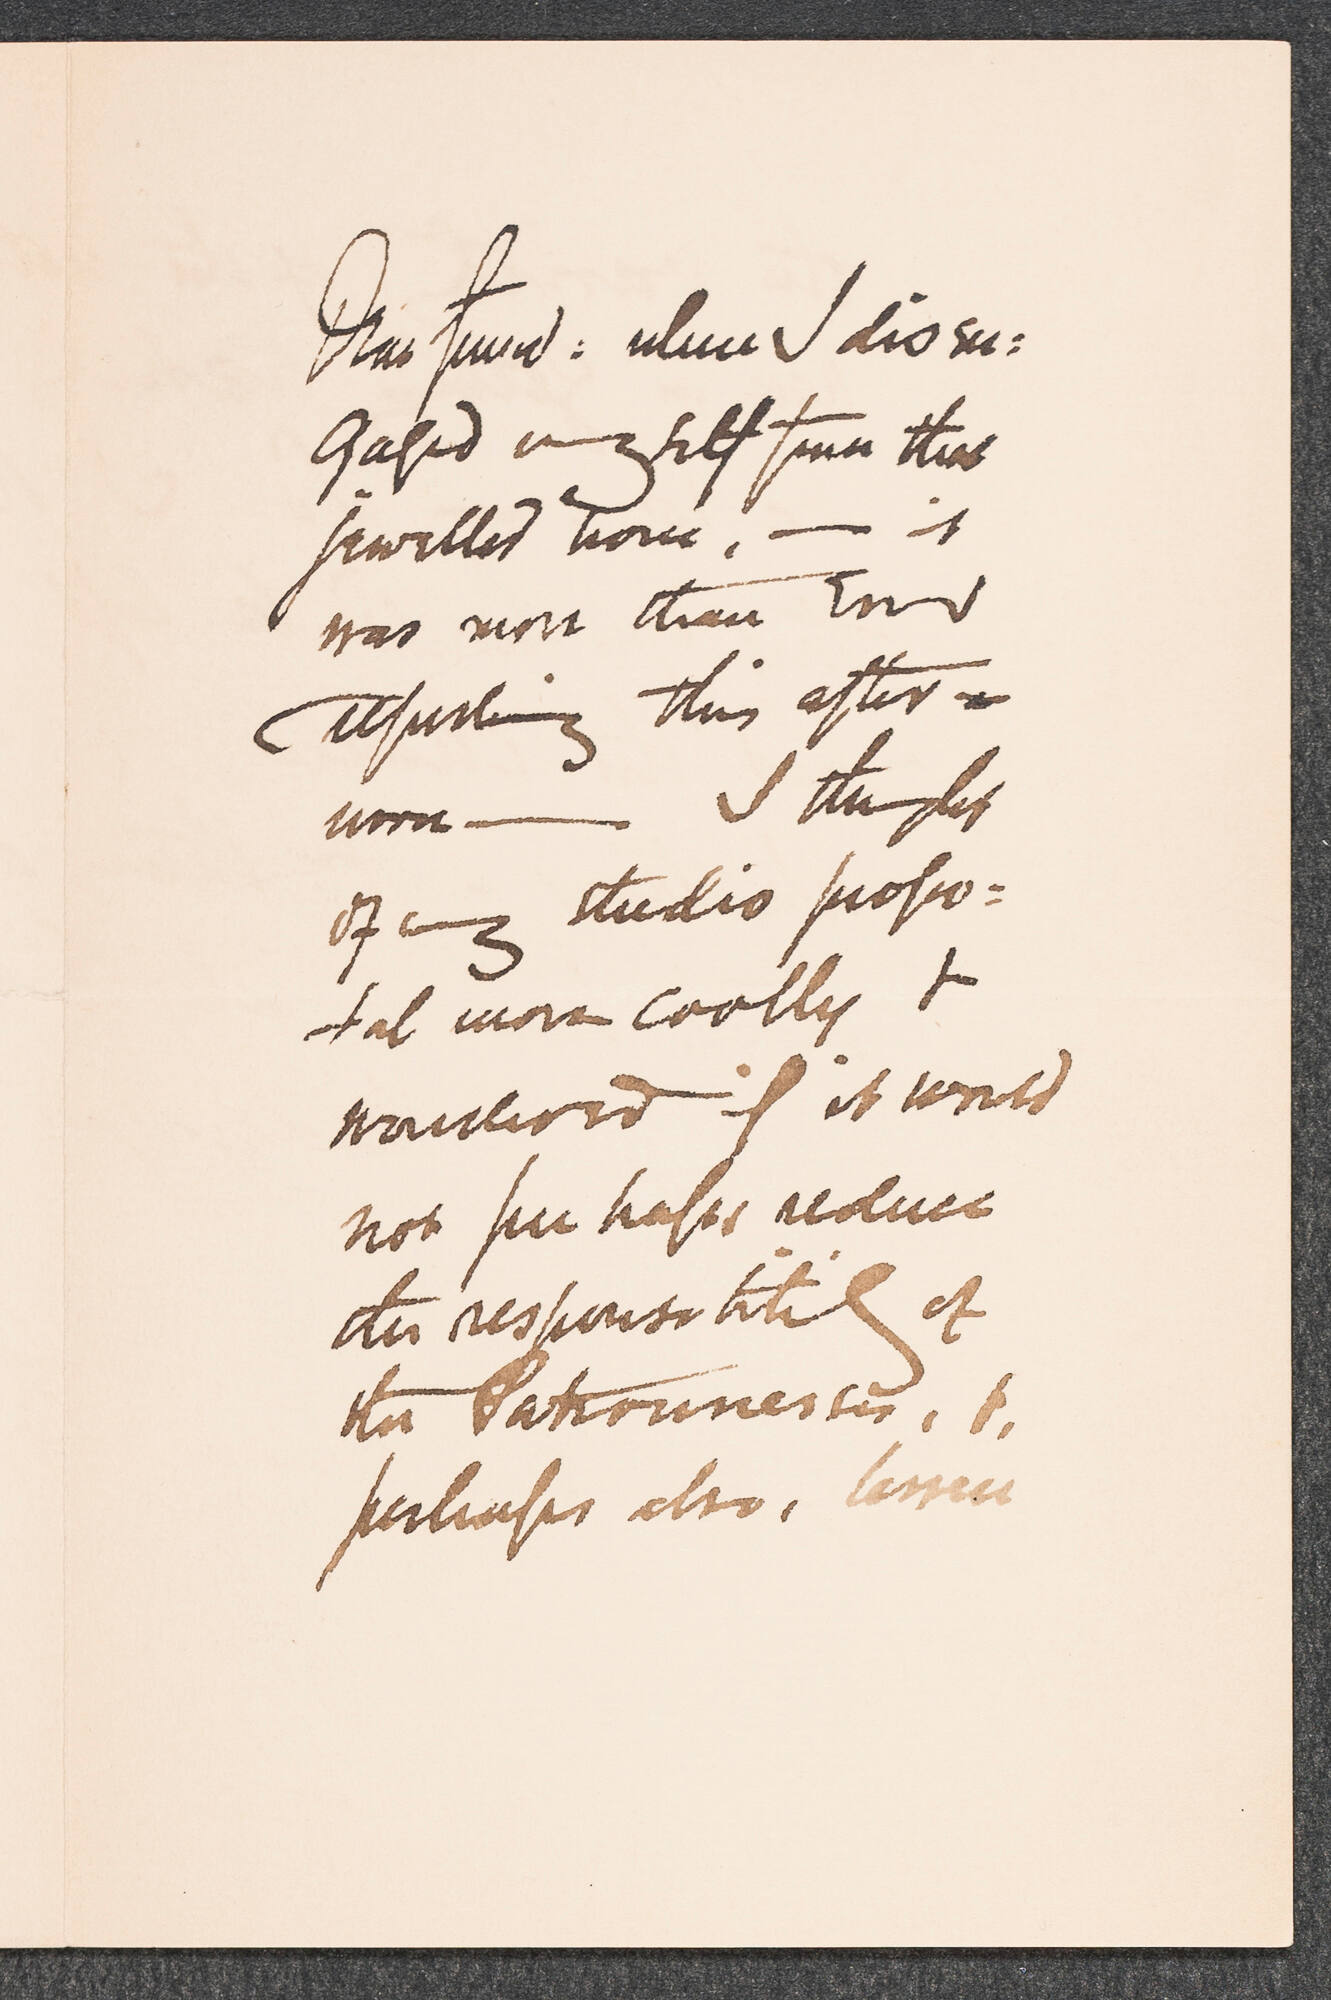 Dear friend: when I disen=
gaged myself from that
jewelled hour, — it
was more than kind
this after=
noon — I thought
of my studio propo=
sal more coolly &
wondered if it would
not perhaps reduce
the responsibility of
the Patronesses, &,
perhaps also, lessen